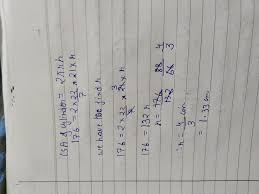 CSA of cylinder = 2πrh
176 = 2 × 22/7 × 21 × h
we have to find h
176 = 2 × 22/7 × 21 × h
3
176 = 132 h
h = 176/132 88/66 4/3
∴ h = 4/3 cm
= 1.33 cm